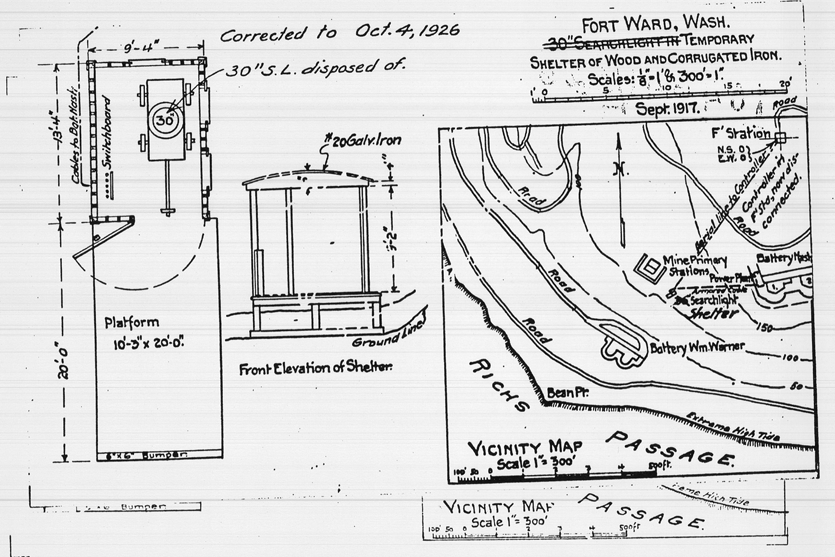 Corrected to Oct. 4, 1926
30" S.L. disposed of.
9'-4"
13'-4"
Cables to Bat. Nash.
Switchboard
30"
20'-0"
Platform
10'-3" x 20'-0".
6"x6" Bumper
Bumper
#20 Galv. Iron
Ground Line
Front Elevation of Shelter.
FORT WARD, WASH.
30" SEARCHLIGHT IN TEMPORARY
SHELTER OF WOOD AND CORRUGATED IRON.
Scales: ⅛"=1' & 300'=1".
1' 0 5 10 15 20'
Sept. 1917.
Road
F' Station
N.S. O
E.W. O
Aerial line to Controller
Controller in
F' Sta. now dis-
connected.
Road
N
Road
100
Mine Primary
Stations
Power Plant
Battery Nash
Searchlight
Shelter
1. 2
150
100
50
Road
Road
Battery Wm. Warner
Bean Pt.
RICHS
PASSAGE.
Extreme High Tide
VICINITY MAP
Scale 1"= 300'
100' 50 0 1 2 3 4 500ft.
VICINITY MAP
Scale 1"= 300'
100' 50 0 1 2 3 4 500ft
PASSAGE.
High Tide